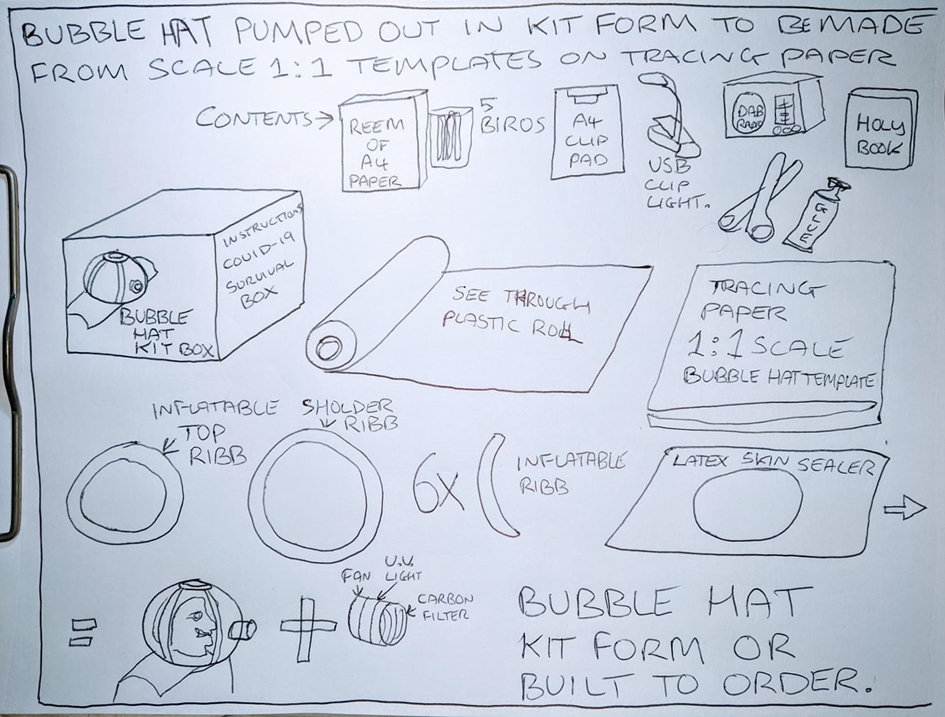 BUBBLE HAT PUMPED OUT IN KIT FORM TO BE MADE
FROM SCALE 1:1 TEMPLATES ON TRACING PAPER
CONTENTS →
REEM
OF
A4
PAPER
5
BIROS
A4
CLIP
PAD
USB
CLIP
LIGHT.
DAB
RADIO
HOLY
BOOK
GLUE
INSTRUCTIONS
COVID-19
SURVIVAL
BOX
BUBBLE
HAT
KIT BOX
SEE THROUGH
PLASTIC ROLL
TRACING
PAPER
1:1 SCALE
BUBBLE HAT TEMPLATE
INFLATABLE
TOP
RIBB
SHOLDER
RIBB
6X
INFLATABLE
RIBB
LATEX SKIN SEALER
=
+
FAN
U.V.
LIGHT
CARBON
FILTER
BUBBLE HAT
KIT FORM OR
BUILT TO ORDER.